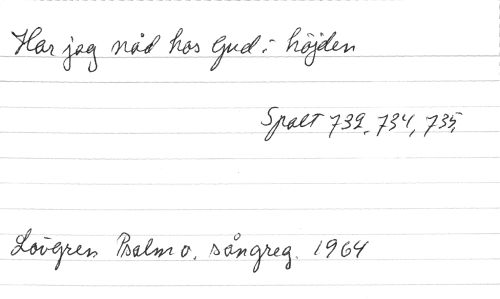 Har jag nåd hos Gud i höjden
Spalt 732, 734, 735,
Lövgren Psalm o. sångreg. 1964